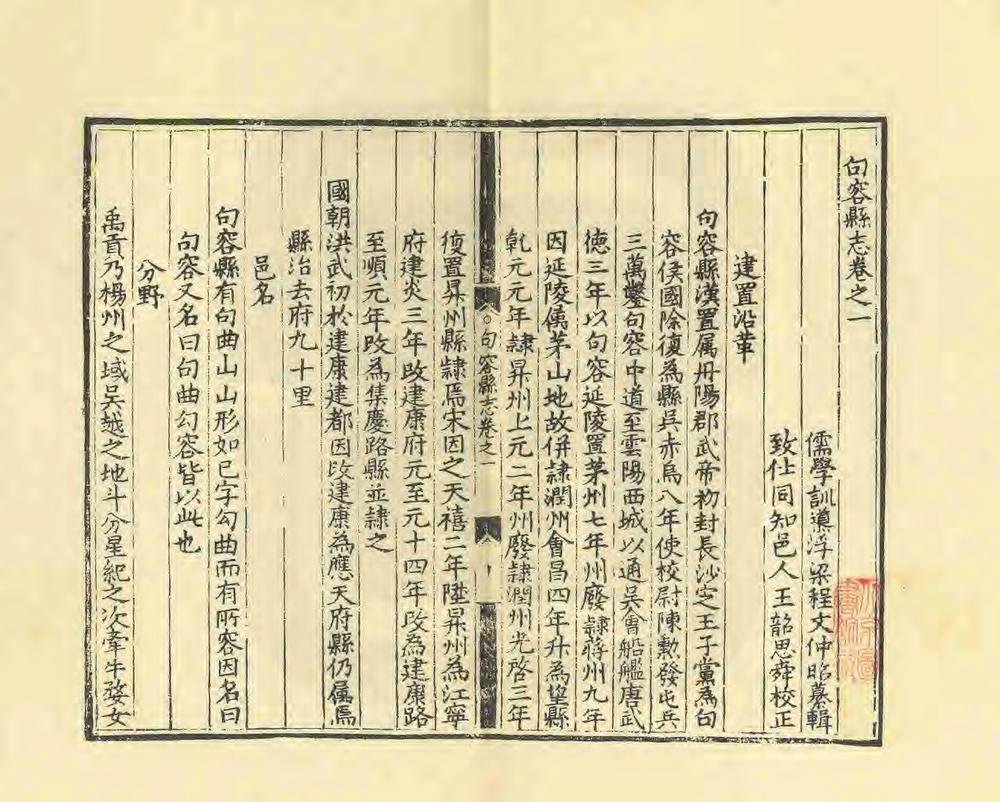 句容縣志卷之一
儒學訓導浮梁程文仲昭纂輯
致仕同知邑人王韶思舜校正
建置沿革
句容縣漢置属丹陽郡武帝初封長沙定王子黨為句
容侯國除復為縣吳赤烏八年使校尉陳勲發屯兵
三萬鑿句容中道至雲陽西城以通吳會船艦唐武
徳三年以句容延陵置茅州七年州廢隷蔣州九年
因延陵属茅山地故併隷潤州會昌四年升為望縣
乹元元年隷昇州上元二年州廢隷潤州光啓三年
句容縣志卷之一
復置昇州縣隷焉宋因之天禧二年陞昇州為江寧
府建炎三年改建康府元至元十四年改為建康路
至順元年改為集慶路縣並隷之
國朝洪武初於建康建都因改建康為應天府縣仍属焉
縣治去府九十里
邑名
句容縣有句曲山山形如已字勾曲而有所容因名曰
句容又名曰句曲勾容皆以此也
分野
禹貢乃楊州之域吳越之地斗分星紀之次牽牛婺女